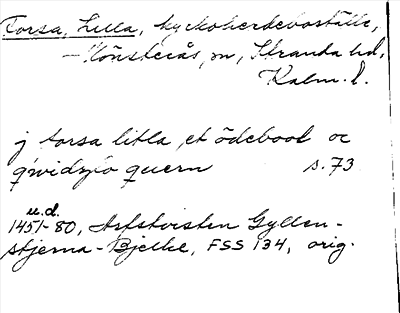 Torsa, Lilla, kyrkoherdeboställe,
– Mönsterås, sn, Stranda hd,
Kalm. l.
j torsa litla et ödebool oc
qwidzjo quern s. 73
u.d.
1451-80, Arfstvisten Gyllen-
stjerna-Bjelke, FSS 134, orig.